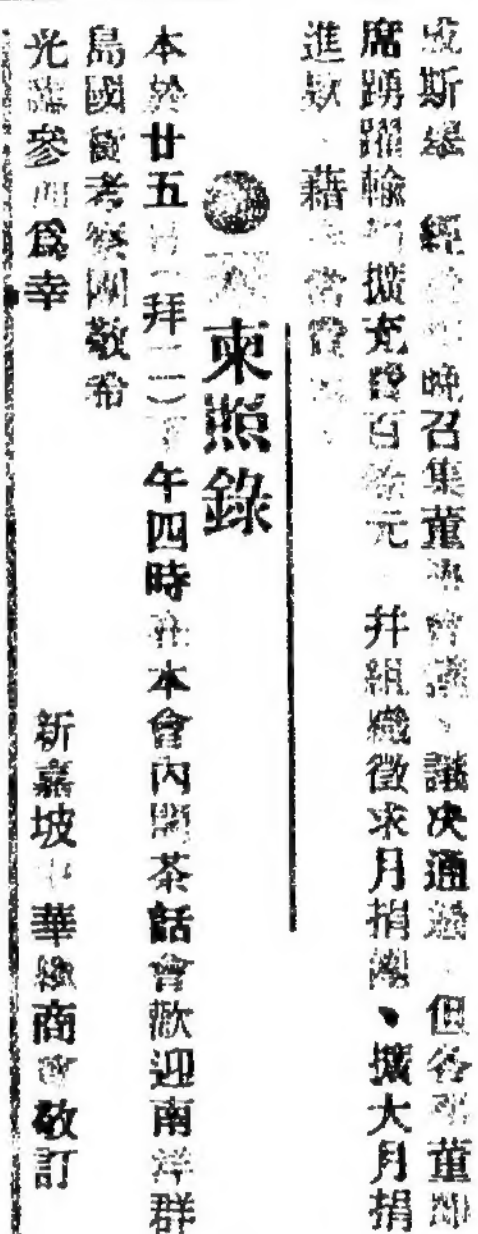 斯舉 經 晚召集董事會議、議決通過 但各 董即
席踴躍輸 擴充 百餘元 幷組織徵求月捐隊、擴大月捐
進款 藉
柬照錄
本於廿五日(拜二)下午四時在本會內開茶話會歡迎南洋群
島國貨考察團敬希
光臨參加爲幸
新嘉坡中華總商會敬訂